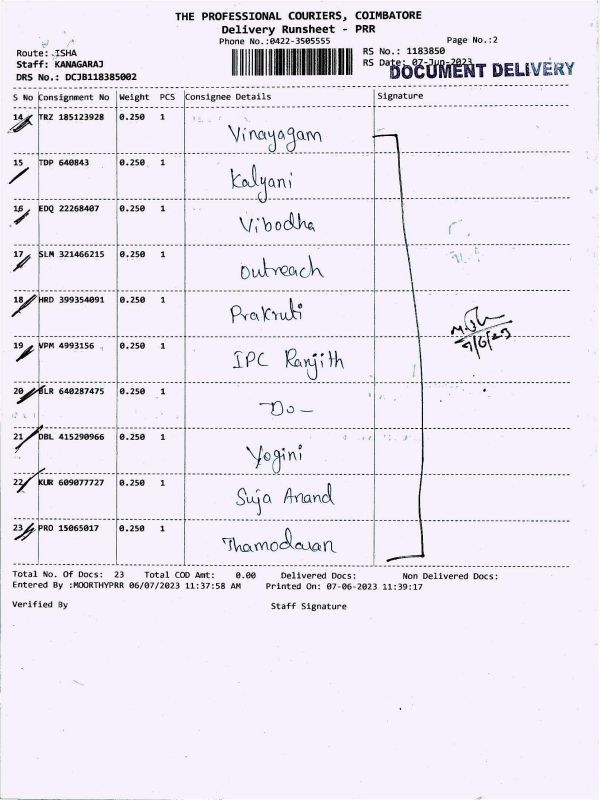 THE PROFESSIONAL COURIERS, COIMBATORE
Delivery Runsheet - PRR
Phone No.:0422-3505555
Page No.:2
Route: ISHA
RS No.: 1183850
Staff: KANAGARAJ
RS Date: 07-Jun-2023
DRS No.: DCJB118385002
DOCUMENT DELIVERY
S No Consignment No Weight PCS Consignee Details Signature
14 TRZ 185123928 0.250 1 Vinayagam
15 TDP 640843 0.250 1 Kalyani
16 EDQ 22268407 0.250 1 Vibodha
17 SLM 321466215 0.250 1 Outreach
18 HRD 399354091 0.250 1 Prakruti
19 VPM 4993156 0.250 1 IPC Ranjith
20 BLR 640287475 0.250 1 Do-
21 DBL 415290966 0.250 1 Yogini
22 KUR 609077727 0.250 1 Suja Anand
23 PRO 15065017 0.250 1 Thamodaran
Total No. Of Docs: 23 Total COD Amt: 0.00 Delivered Docs: Non Delivered Docs:
Entered By :MOORTHYPRR 06/07/2023 11:37:58 AM Printed On: 07-06-2023 11:39:17
Verified By Staff Signature